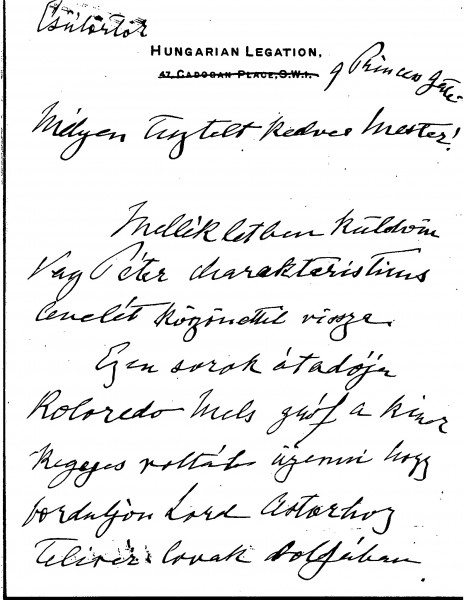 Csütörtök
HUNGARIAN LEGATION,
47, CADOGAN PLACE, S.W.1. 9 Princes Gate
Mélyen Tisztelt kedves Mester!
Mellékletben küldöm
Vay Péter charakteristicus
levelét köszönettel vissza.
Ezen sorok átadója
Koloredo Mels gróf a kinek
kegyes voltál üzenni hogy
forduljon Lord Astorhoz
telivér lovak dolgában